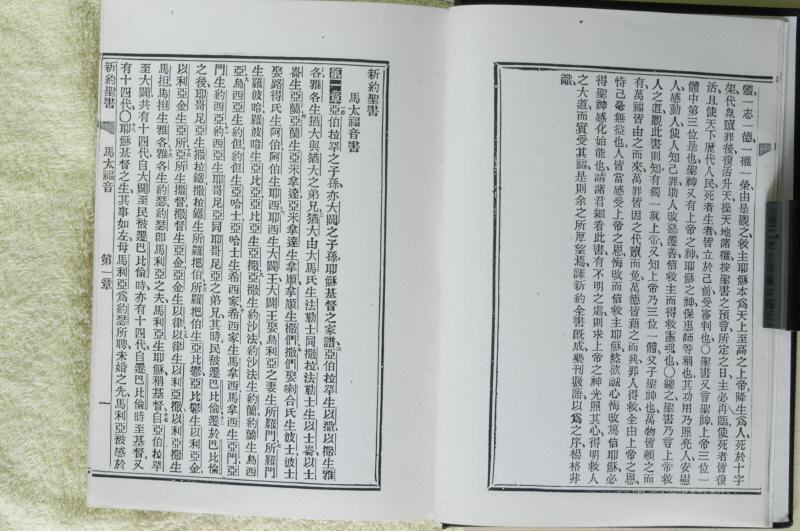 體一志一德一權一榮由是觀之救主耶穌本爲天上至高之上帝降生爲人死於十字
架代衆贖罪後復活升天操天地諸權按聖書之預言所定之日主必再臨使死者皆復
活且使天下歷代人民死者生者皆立於己前受審判也〇聖書又言聖神上帝三位一
體中第三位是也聖神又有上帝之神耶穌之神保惠師等稱也其功用乃照亮人安慰
人感動人使人知己罪助人改惡遷善信救主而得救靈魂也〇總之聖書乃言上帝救
人之道觀此書則知有獨一眞上帝又知上帝乃三位一體父子聖神也萬物皆賴之而
有萬福皆由之而來萬罪皆因之代贖而免萬德皆藉之而興罪人得救全由上帝之恩
恃己毫無益也人皆當感受上帝之恩悔改而信救主耶穌然欲誠心悔改篤信耶穌必
得聖神感化始能也請諸君細看此書有不明之處則求上帝之神光照其心得明救人
之大道而實受其福是則余之所厚望焉譯新約全書既成樂刊數語以爲之序楊格非
識
新約聖書
馬太福音書
第一章亞伯拉罕之子孫亦大闢之子孫耶穌基督之家譜亞伯拉罕生以撒以撒生雅
各雅各生猶大與猶大之弟兄猶大由大馬氏生法勒士同撒拉法勒士生以士崙以士
崙生亞蘭亞蘭生亞米拿達亞米拿達生拿順拿順生撒們撒們娶喇合氏生波士波士
娶路得氏生阿伯阿伯生耶西耶西生大闢王大闢王娶烏利亞之妻生所羅門所羅門
生羅波暗羅波暗生亞比亞亞比亞生亞撒亞撒生約沙法約沙法生約蘭約蘭生烏西
亞烏西亞生約但約但生亞哈士亞哈士生希西家希西家生馬拿西馬拿西生亞門亞
門生約西亞約西亞生耶哥尼亞同耶哥尼亞之弟兄其時民被遷巴比倫遷於巴比倫
之後耶哥尼亞生撒拉鐵撒拉鐵生所羅把伯所羅把伯生亞比鬱亞比鬱生以利亞金
以利亞金生亞所亞所生撒督撒督生亞金亞金生以律以律生以利亞撒以利亞撒生
馬担馬担生雅各雅各生約瑟約瑟即馬利亞之夫馬利亞生耶穌稱基督自亞伯拉罕
至大闢共有十四代自大闢至民被遷巴比倫時亦有十四代自遷巴比倫時至基督又
有十四代〇耶穌基督之生其事如左母馬利亞爲約瑟所聘未婚之先馬利亞被感於
新約聖書
馬太福音
第一章
一